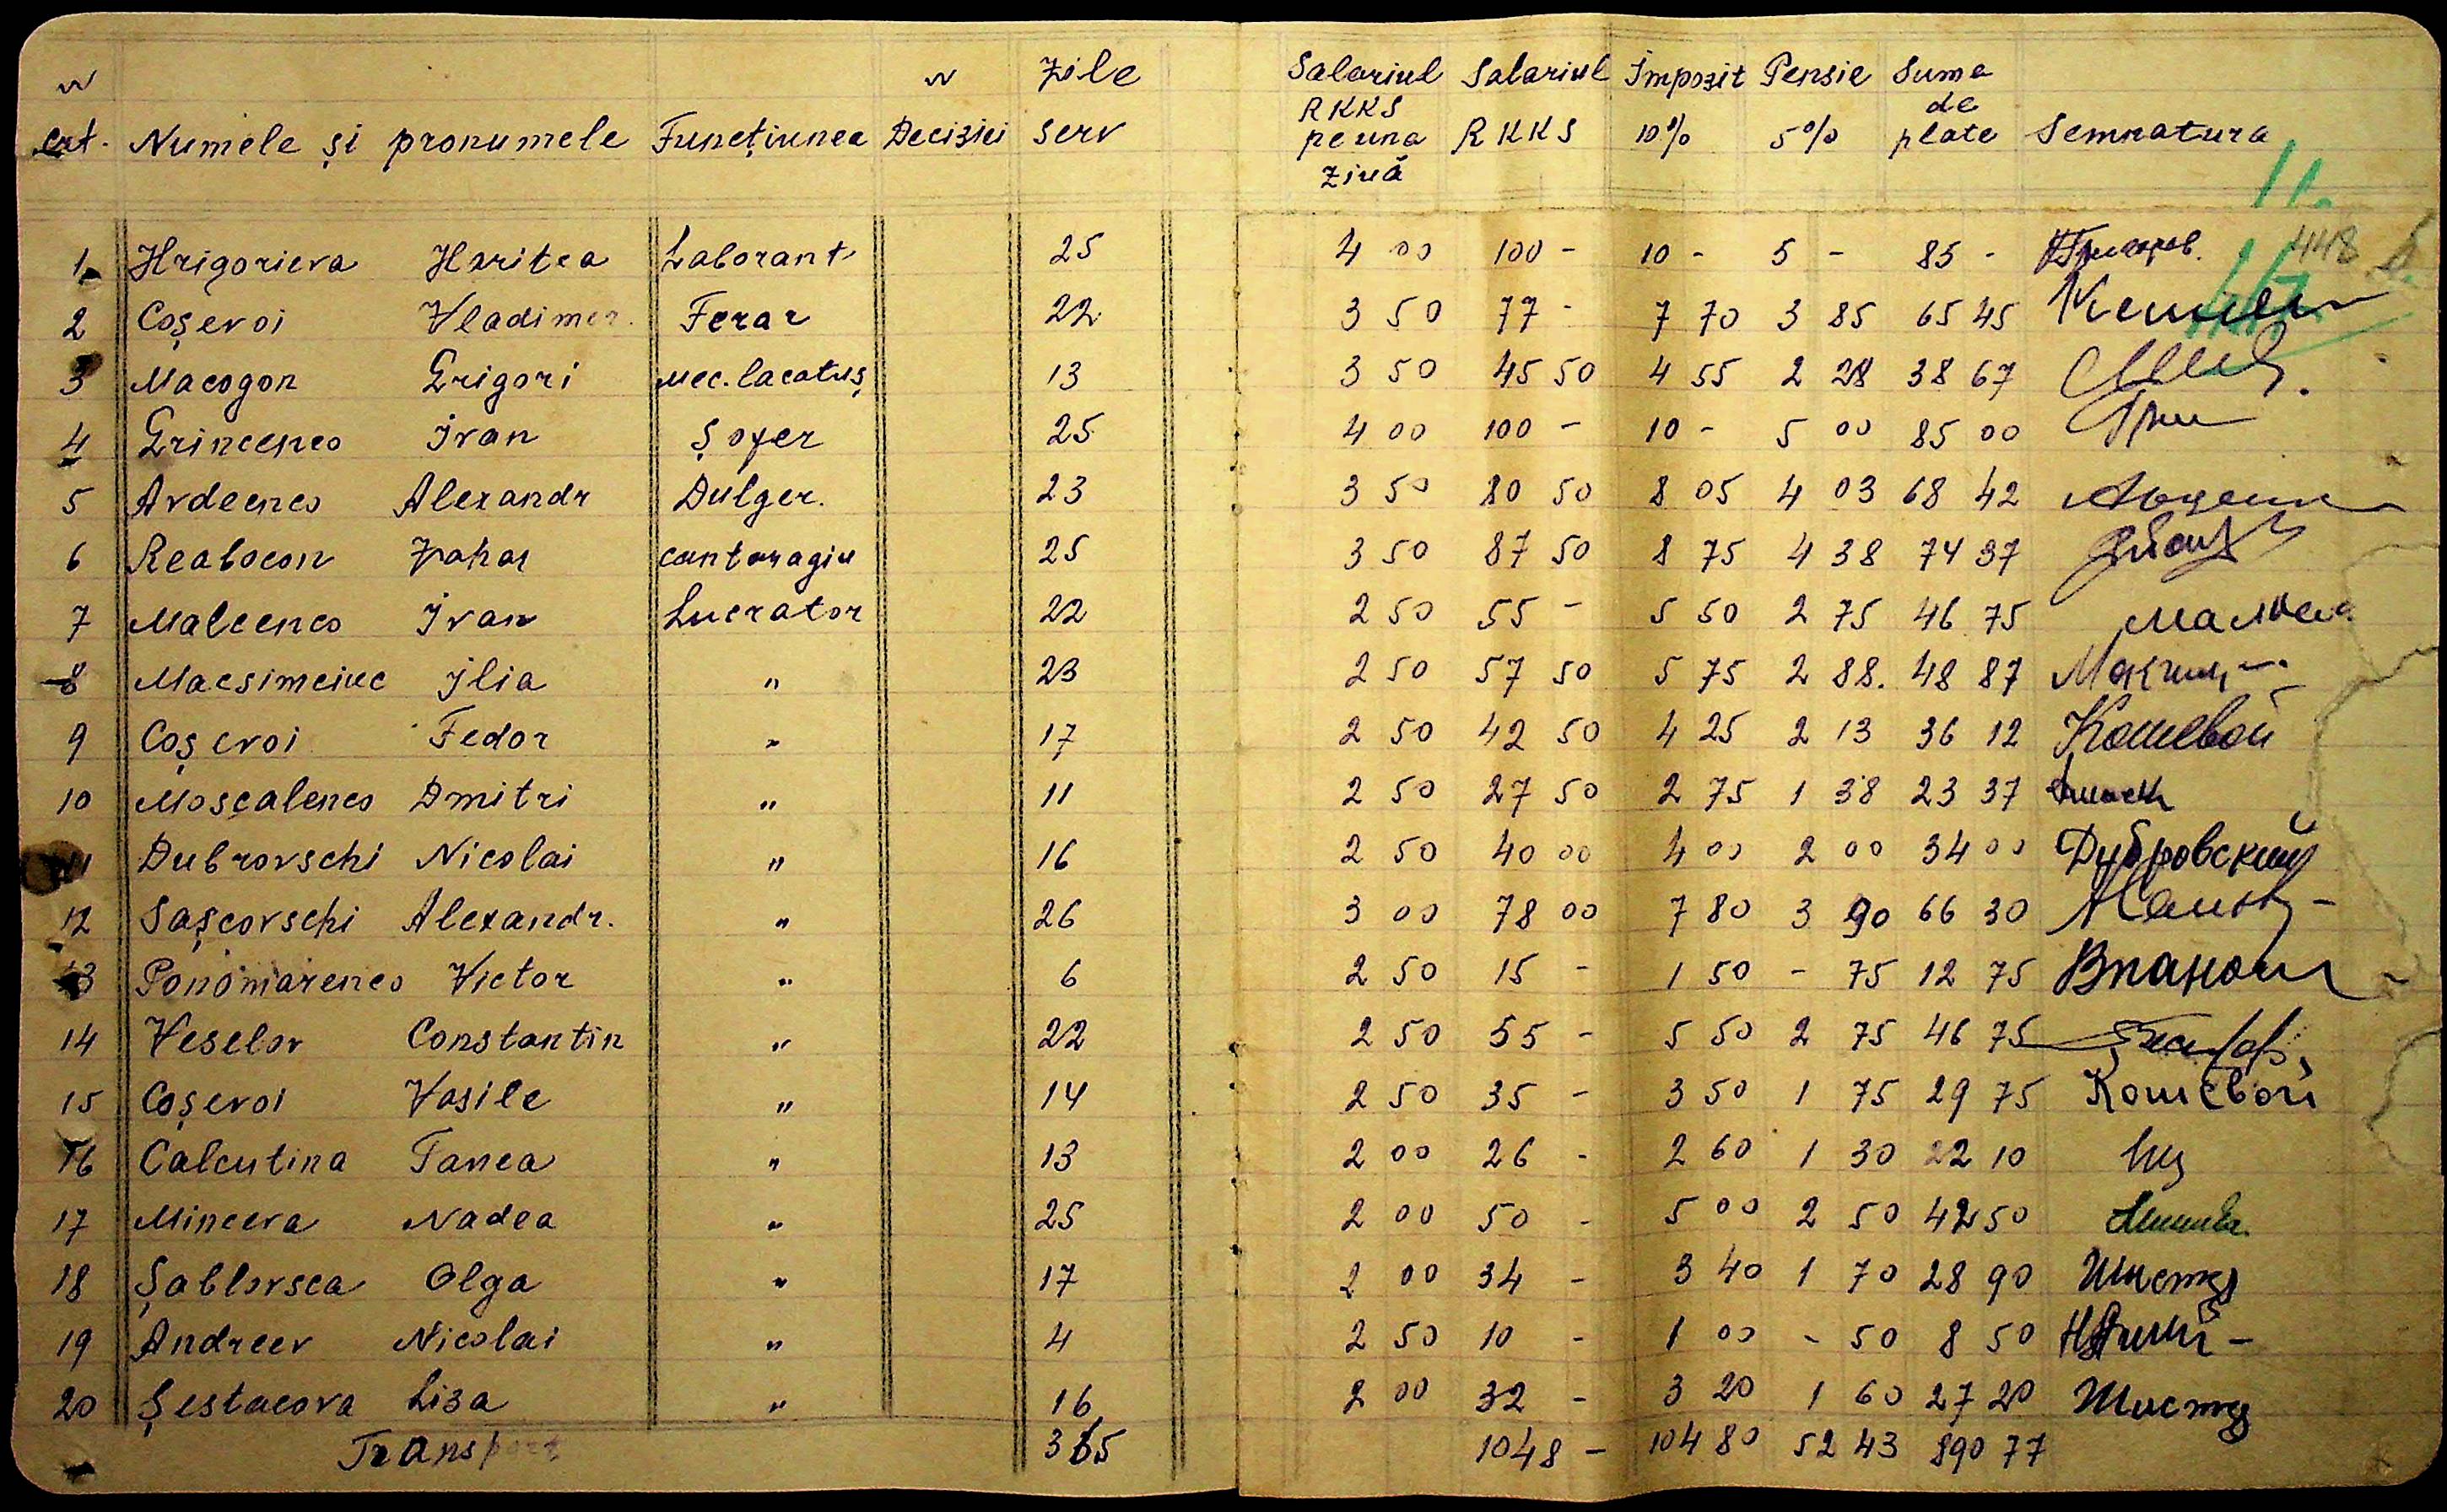 N Zile Salariul Salariul Impozit Pensie Suma
RKKS de
crt. Numele și pronumele Funcțiunea Deciziei serv pe una RKKS 10% 5% plate Semnatura
ziuă
11.
448
1 Hrigorieva Haritea Laborant 25 4 00 100 - 10 - 5 - 85 -
2 Coșevoi Vladimer. Ferar 22 3 50 77 - 7 70 3 85 65 45
3 Macogon Grigori mec. lacatuș 13 3 50 45 50 4 55 2 28 38 67
4 Grincenco Ivan Șofer 25 4 00 100 - 10 - 5 00 85 00 Гри
5 Avdeenco Alexandr Dulger. 23 3 50 80 50 8 05 4 03 68 42
6 Reabocon Zahar cantaragiu 25 3 50 87 50 8 75 4 38 74 37
7 Malcenco Ivan Lucrator 22 2 50 55 - 5 50 2 75 46 75
8 Macsimciuc Ilia " 23 2 50 57 50 5 75 2 88. 48 87
9 Coșevoi Fedor " 17 2 50 42 50 4 25 2 13 36 12 Кошевой
10 Moscalenco Dmitri " 11 2 50 27 50 2 75 1 38 23 37
11 Dubrovschi Nicolai " 16 2 50 40 00 4 00 2 00 34 00 Дубровский
12 Sașcovschi Alexandr. " 26 3 00 78 00 7 80 3 90 66 30
13 Ponomarenco Victor " 6 2 50 15 - 1 50 - 75 12 75
14 Veselov Constantin " 22 2 50 55 - 5 50 2 75 46 75
15 Coșevoi Vasile " 14 2 50 35 - 3 50 1 75 29 75 Кошевой
16 Calcutina Tanea " 13 2 00 26 - 2 60 1 30 22 10
17 Minceva Nadea " 25 2 00 50 - 5 00 2 50 42 50
18 Șablovsca Olga " 17 2 00 34 - 3 40 1 70 28 90
19 Andreev Nicolai " 4 2 50 10 - 1 00 - 50 8 50
20 Șestacova Liza " 16 2 00 32 - 3 20 1 60 27 20
Transport 365 1048 - 104 80 52 43 890 77